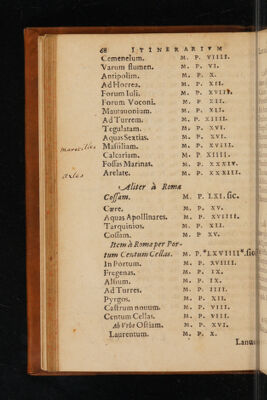 68 ITINERARIVM
Cemenelum. M. P. VIIII.
Varum flumen. M. P. VI.
Antipolim. M. P. X.
Ad Horrea. M. P. XII.
Forum Iuli. M. P. XVIII.
Forum Voconi. M. P. XII.
Matauonium. M. P. XII.
Ad Turrem. M. P. XIIII.
Tegulatam. M. P. XVI.
Aquas Sextias. M. P. XVI.
Massiliam. M. P. XVIII.
Marseilles
Calcariam. M. P. XIIII.
Fossas Marinas. M. P. XXXIV.
Arelate. M. P. XXXIII.
Arles
Aliter à Roma
Cossam. M. P. LXI. sic.
Cære. M. P. XV.
Aquas Apollinares. M. P. XVIIII.
Tarquinios. M. P. XII.
Cossam. M. P. XV.
Item à Roma per Por-
tum Centum Cellas. M. P. "LXVIIII". sic
In Portum. M. P. XVIIII.
Fregenas. M. P. IX.
Alsium. M. P. IX.
Ad Turres. M. P. IIII.
Pyrgos. M. P. XII.
Castrum nouum. M. P. VIII.
Centum Cellas. M. P. VIII.
Ab Vrbe Ostiam. M. P. XVI.
Laurentum. M. P. X.
Lanu